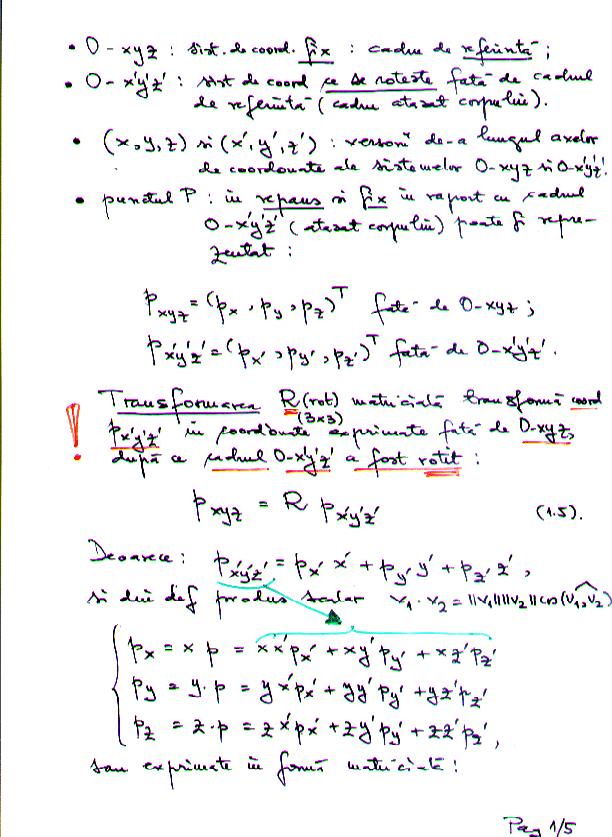 • O-xyz : sist. de coord. fix : cadru de referință ;
• O-x'y'z' : sist de coord ce se rotește față de cadrul
de referință (cadru atașat corpului).
• (x,y,z) și (x',y',z') : versorii de-a lungul axelor
de coordonate ale sistemelor O-xyz și O-x'y'z'.
• punctul P : în repaus și fix în raport cu cadrul
O-x'y'z' (atașat corpului) poate fi repre-
zentat :
p_xyz = (p_x , p_y , p_z)^T față de O-xyz ;
p_x'y'z' = (p_x' , p_y' , p_z')^T față de O-x'y'z'.
Transformarea R (rot) matricială transformă coord
(3x3)
! p_x'y'z' în coordonate exprimate față de O-xyz,
după ce cadrul O-x'y'z' a fost rotit :
p_xyz = R p_x'y'z' (1.5).
Deoarece : p_x'y'z' = p_x' x' + p_y' y' + p_z' z' ,
și din def produs scalar v_1 · v_2 = ||v_1|| ||v_2|| cos(v_1, v_2)
p_x = x p = x x' p_x' + x y' p_y' + x z' p_z'
p_y = y · p = y x' p_x' + y y' p_y' + y z' p_z'
p_z = z · p = z x' p_x' + z y' p_y' + z z' p_z' ,
sau exprimate în formă matricială :
Pag 1/5